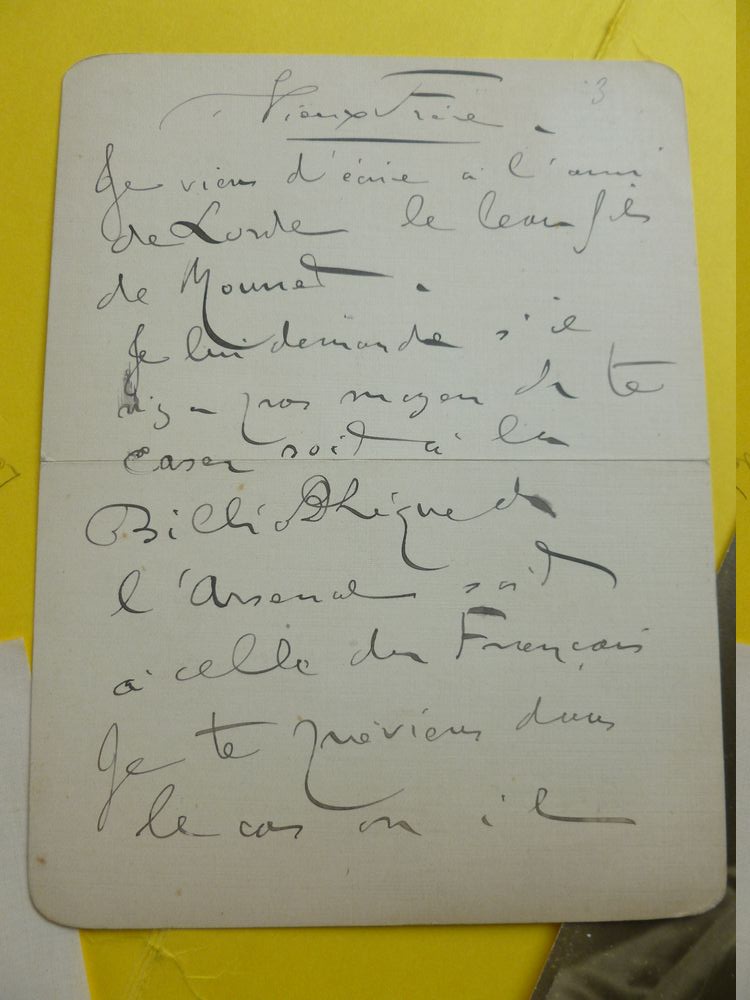 3
Vieux Frère.
Je viens d'écrire à l'ami
de Lorde le beau fils
de Mounet.
Je lui demande s'il
n'y a pas moyen de te
caser soit à la
Bibliothèque de
l'Arsenal soit
à celle du Français
Je te préviens dans
le cas où il